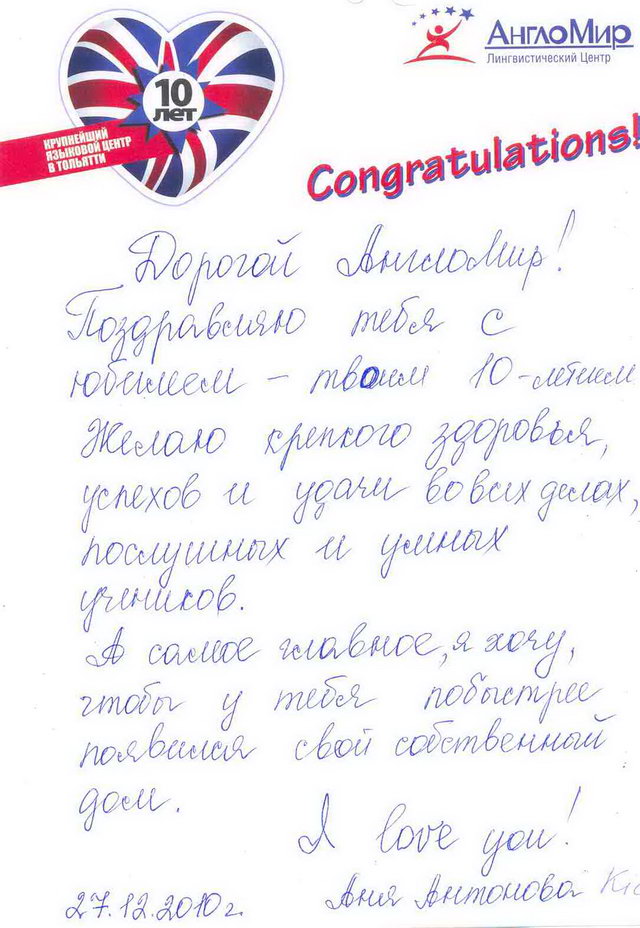 10
лет
КРУПНЕЙШИЙ
ЯЗЫКОВОЙ ЦЕНТР
В ТОЛЬЯТТИ
АнглоМир
Лингвистический Центр
Congratulations!
Дорогой АнглоМир!
Поздравляю тебя с
юбилеем – твоим 10-летием
Желаю крепкого здоровья,
успехов и удачи во всех делах,
послушных и умных
учеников.
А самое главное, я хочу,
чтобы у тебя побыстрее
появился свой собственный
дом.
I love you!
27.12.2010г. Аня Антонова